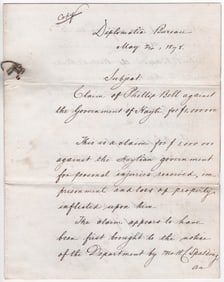 Copy
Diplomatic Bureau
May 1878.
Subject
Claim of Phillip Bell against
the Government of Hayti for
This is a claim for
against the Haytian government
for personal injuries received, im
prisonment and loss of property
inflicted upon him.
The claim appears to have
been first brought to the notice
of the Department by Mr H. C. Spalding
an